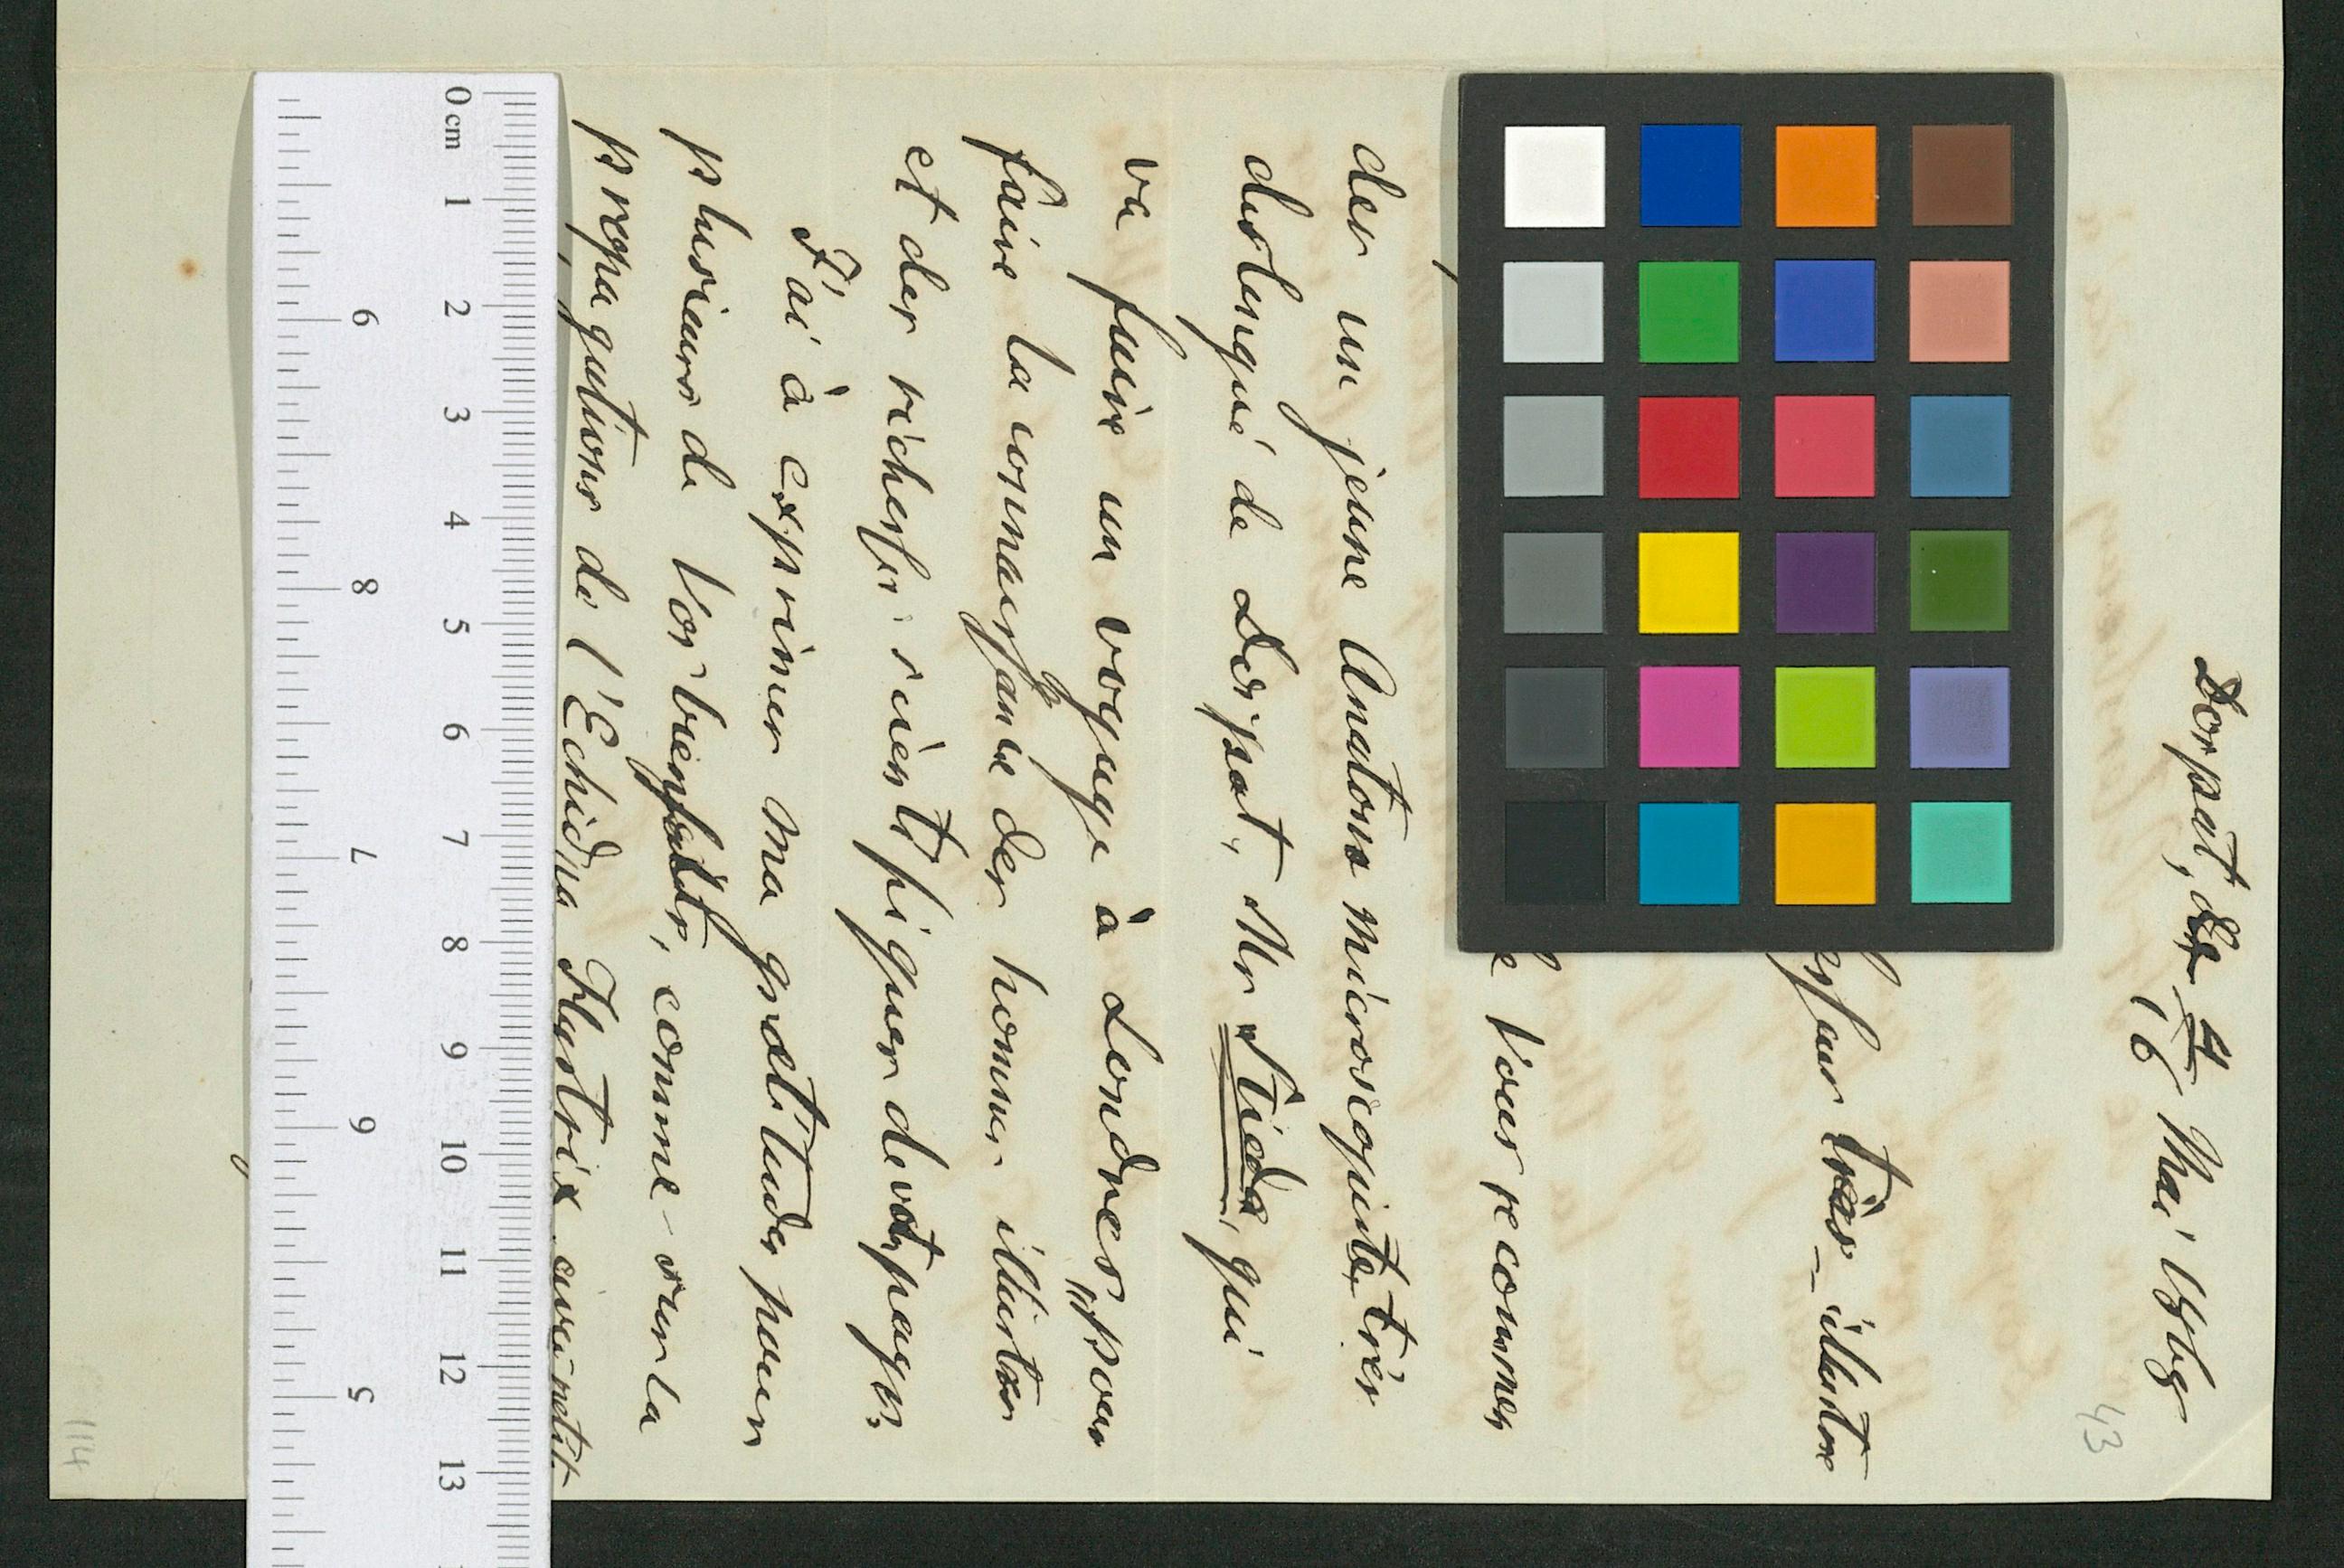 Dorpat, 4/16 Mai 1868
43
très-illustre
Vous recommen
der un jeune Anatome microscopiste très
destingué de Dorpat, Mr Stieda, qui
va faire un voyage à Londres, pour
faire la connaissance des hommes illustres
et des richesses scientifiques de votre pays.
J'ai à exprimer ma gratitude pour
plusieurs de Vos bienfaits, comme sur la
propagations de l'Echidna Hystrix
114
0 cm 1 2 3 4 5 6 7 8 9 10 11 12 13
6 8 7 9 5